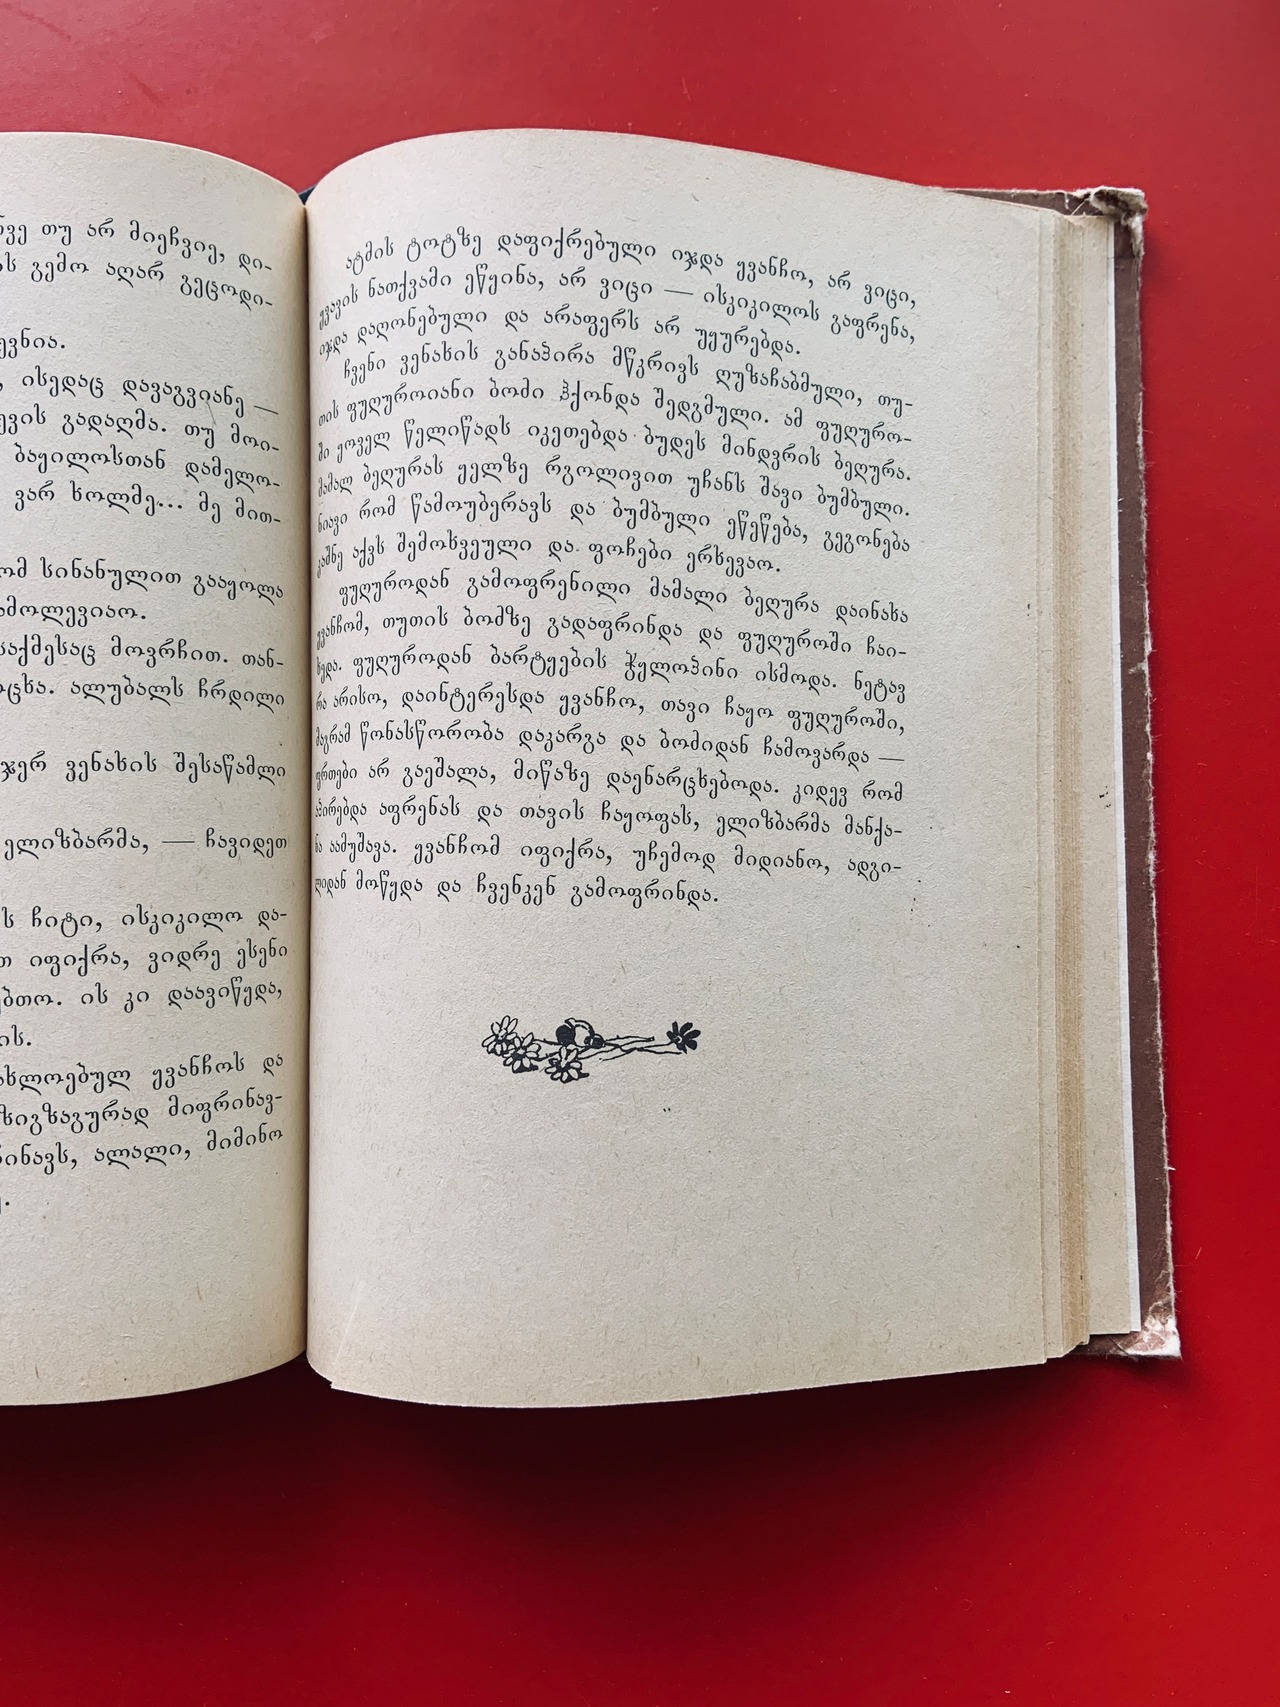 თუ არ მიეჩვიე, დი-
გემო აღარ გეცოდი-
ისედაც დავაგვიანე —
გადაღმა. თუ მოი-
ბაყილოსთან დამელო-
ვარ ხოლმე... მე მით-
სინანულით გააყოლა
საქმესაც მოვრჩით. თან-
ალუბალს ჩრდილი
ვენახის შესაწამლი
ელიზბარმა, — ჩავიდეთ
ჩიტი, ისკიკილო და-
იფიქრა, ვიდრე ესენი
ის კი დაავიწყდა,
ყვანჩოს და
ზიგზაგურად მიფრინავ-
ალალი, მიმინო
ატმის ტოტზე დაფიქრებული იჯდა ყვანჩო, არ ვიცი,
ყვავის ნათქვამი ეწყინა, არ ვიცი — ისკიკილოს გაფრენა,
იჯდა დაღონებული და არაფერს არ უყურებდა.
ჩვენი ვენახის განაპირა მწკრივს ღუზაჩაბმული, თუ-
თის ფუღუროიანი ბომი ჰქონდა შედგმული. ამ ფუღურო-
ში ყოველ წელიწადს იკეთებდა ბუდეს მინდვრის ბეღურა.
მამალ ბეღურას ყელზე რგოლივით უჩანს შავი ბუმბული.
ნიავი რომ წამოუბერავს და ბუმბული ეწეწება, გეგონება
კაშნე აქვს შემოხვეული და ფოჩები ერხევაო.
ფუღუროდან გამოფრენილი მამალი ბეღურა დაინახა
ყვანჩომ, თუთის ბომზე გადაფრინდა და ფუღუროში ჩაი-
ხედა. ფუღუროდან ბარტყების ჭყლოპინი ისმოდა. ნეტავ
რა არისო, დაინტერესდა ყვანჩო, თავი ჩაყო ფუღუროში,
მაგრამ წონასწორობა დაკარგა და ბომიდან ჩამოვარდა —
ფრთები არ გაეშალა, მიწაზე დაენარცხებოდა. კიდევ რომ
აპირებდა აფრენას და თავის ჩაყოფას, ელიზბარმა მანქა-
ნა აამუშავა. ყვანჩომ იფიქრა, უჩემოდ მიდიანო, ადგი-
ლიდან მოწყდა და ჩვენკენ გამოფრინდა.